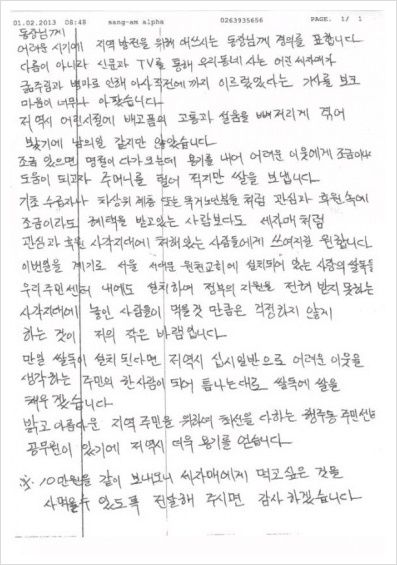 01.02.2013 08:48 sang-am alpha 0263935656 PAGE. 1/ 1
동장님께
어려운 시기에 지역 발전을 위해 애쓰시는 동장님께 경의를 표합니다
다름이 아니라 신문과 TV를 통해 우리동네 사는 어린 세자매가
굶주림과 병마로 인해 아사직전에 까지 이르렀었다는 기사를 보고
마음이 너무나 아팠습니다
저 역시 어린시절에 배고픔의 고통과 설움을 뼈저리게 겪어
봤기에 남의일 같지만 않았습니다
조금 있으면 명절이 다가오는데 용기를 내어 어려운 이웃에게 조금이나마
도움이 되고자 주머니를 털어 적지만 쌀을 보냅니다
기초 수급자나 차상위 계층 또는 독거노인분들 처럼 관심과 후원 속에
조금이라도 혜택을 받고있는 사람보다도 세자매 처럼
관심과 후원 사각지대에 처해있는 사람들에게 쓰여지길 원합니다
이번일을 계기로 서울 서대문 원천교회에 설치되어 있는 사랑의 쌀독을
우리 주민센터 내에도 설치하여 정부의 지원을 전혀 받지 못하는
사각지대에 놓인 사람들이 먹을것 만큼은 걱정하지 않게
하는 것이 저의 작은 바램입니다
만일 쌀독이 설치 된다면 저역시 십시일반으로 어려운 이웃을
생각하는 주민의 한사람이 되어 틈나는대로 쌀독에 쌀을
채우겠습니다
밝고 아름다운 지역 주민을 위하여 최선을 다하는 행주동 주민센터
공무원이 있기에 저역시 더욱 용기를 얻습니다
※ 10만원을 같이 보내오니 세자매에게 먹고싶은 것을
사먹을수 있도록 전달해 주시면 감사하겠습니다